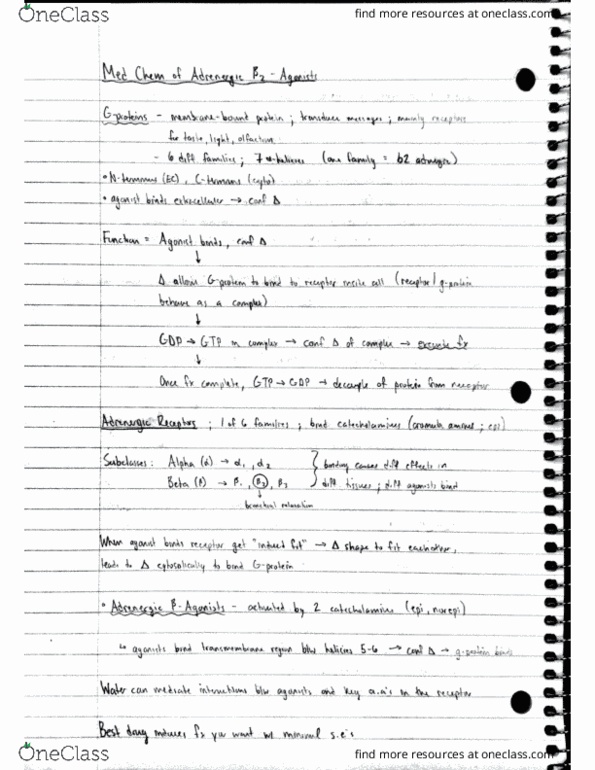 OneClass
find more resources at oneclass.com
Med Chem of Adrenergic β2 - Agonists
G-proteins - membrane-bound protein ; transduce messages ; mainly receptors
for taste, light, olfaction
- 6 diff families ; 7 α-helices (one family = b2 adrenergic)
• N-terminus (EC), C-terminus (cyto)
• agonist binds extracellular → conf Δ
Function = Agonist binds, conf Δ
↓
Δ allows G-protein to bind to receptor inside cell (receptor/g-protein
behave as a complex)
↓
GDP → GTP in complex → conf Δ of complex → execute fx
↓
Once fx complete, GTP → GDP → decouple of protein from receptor
Adrenergic Receptors ; 1 of 6 families ; bind catecholamines (aromatic amines ; epi)
Subclasses : Alpha (α) → α1, α2 } binding causes diff effects in
Beta (β) → β1, β2, β3 diff tissues ; diff agonists bind
↓
bronchial relaxation
When agonist binds receptor get "induct fit" → Δ shape to fit eachother,
leads to Δ cytosolically to bind G-protein
• Adrenergic β-Agonists - activated by 2 catecholamine (epi, norepi)
↳ agonists bind transmembrane region b/w helicies 5-6 → conf Δ → g-protein binds
Water can mediate interactions b/w agonists and key a.a's in the receptor
Best drug induces fx you want w/ minimal s.e's
OneClass
find more resources at oneclass.com